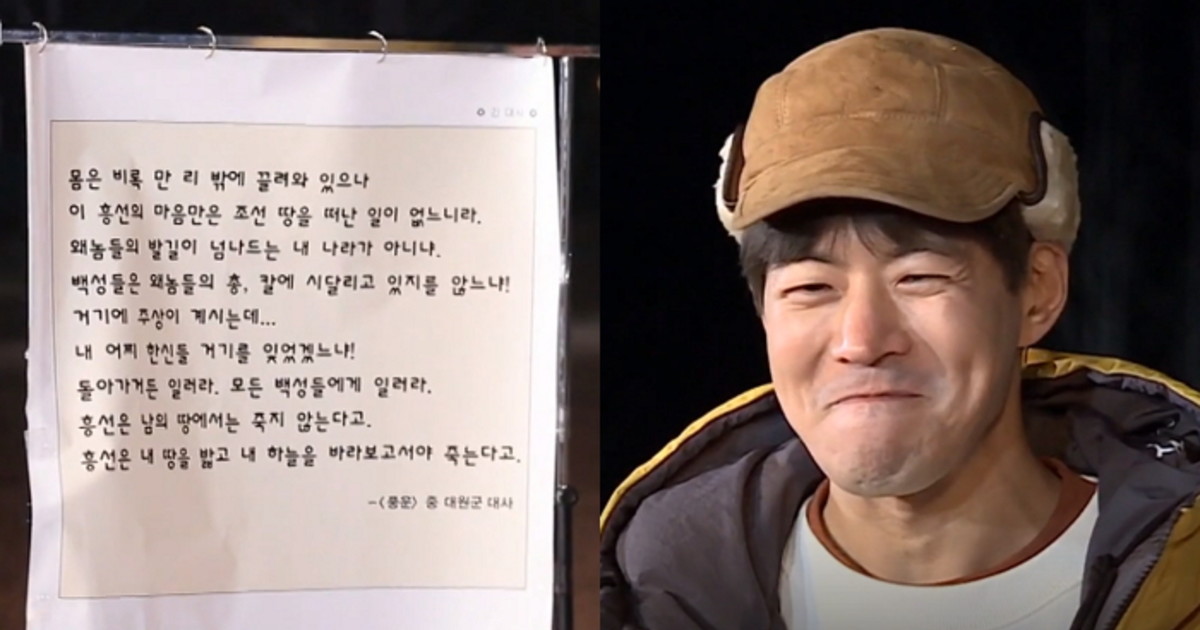 몸은 비록 만 리 밖에 끌려와 있으나
이 흥선의 마음만은 조선 땅을 떠난 일이 없느니라.
왜놈들의 발길이 넘나드는 내 나라가 아니냐.
백성들은 왜놈들의 총, 칼에 시달리고 있지를 않느냐!
거기에 주상이 계시는데...
내 어찌 한신들 거기를 잊었겠느냐!
돌아가거든 일러라. 모든 백성들에게 일러라.
흥선은 남의 땅에서는 죽지 않는다고.
흥선은 내 땅을 밟고 내 하늘을 바라보고서야 죽는다고.
-<풍운> 중 대원군 대사